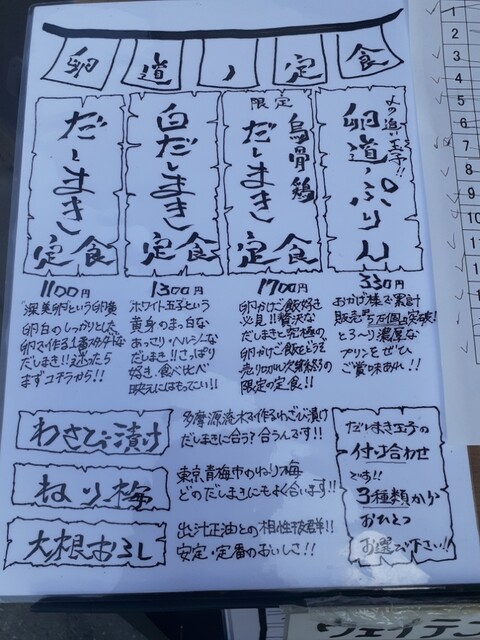 卵道ノ定食
だしまき定食
1100円
"深美卵という卵黄
卵白のしっかりとした
卵で作る1番スタンダードな
だしまき!!迷ったら
まずコチラから!!
白だしまき定食
1300円
"ホワイト玉子という
黄身のまっ白な
あっさり・ヘルシーな
だしまき!!さっぱり
好き・食べ比べ
映えにはもってこい!!
限定
烏骨鶏
だしまき定食
1700円
卵かけご飯好き
必見!!贅沢な
だしまきと究極の
卵かけご飯をどうぞ
売り切れ次第終りの
限定の定食!!
幻の黒玉子!!
卵道ぷりん
330円
おかげ様で累計
販売数5万個突破!
とろ~り濃厚な
プリンをぜひ
ご賞味あれ!!
わさび漬け
多摩源流水で作るわさび漬け
だしまきに合う?合うんです!!
ねり梅
東京青梅市のねり梅
どのだしまきにもよく合います!!
大根おろし
出汁正油との相性抜群!!
安定・定番のおいしさ!!
だしまき玉子の
付け合わせ
です!!
3種類から
おひとつ
お選び下さい!!
1
2
3
4
5
6
7
8
9
10
11
ウェイテン